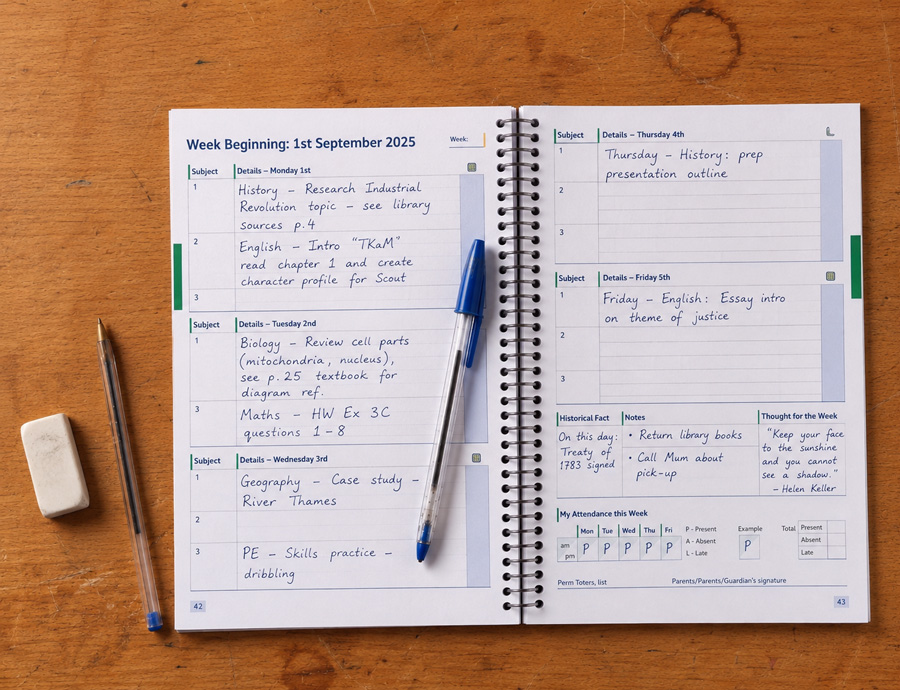 Week Beginning: 1st September 2025
Week:
Subject Details – Monday 1st
1
History – Research Industrial
Revolution topic – see library
sources p.4
2
English – Intro "TKaM"
read chapter 1 and create
character profile for Scout
3
Subject Details – Tuesday 2nd
1
Biology – Review cell parts
(mitochondria, nucleus),
see p.25 textbook for
diagram ref.
3
Maths – HW Ex 3C
questions 1–8
Subject Details – Wednesday 3rd
1
Geography – Case study –
River Thames
2
3
PE – Skills practice –
dribbling
42
Subject Details – Thursday 4th
1
Thursday – History: prep
presentation outline
2
3
Subject Details – Friday 5th
1
Friday – English: Essay intro
on theme of justice
2
3
Historical Fact
On this day:
Treaty of
1783 signed
Notes
• Return library books
• Call Mum about
pick-up
Thought for the Week
"Keep your face
to the sunshine
and you cannot
see a shadow."
– Helen Keller
My Attendance this Week
Mon Tue Wed Thu Fri
am
pm
P P P P P
P - Present
A - Absent
L - Late
Example
P
Total
Present
Absent
Late
Perm Toters, list Parents/Parents/Guardian's signature
43